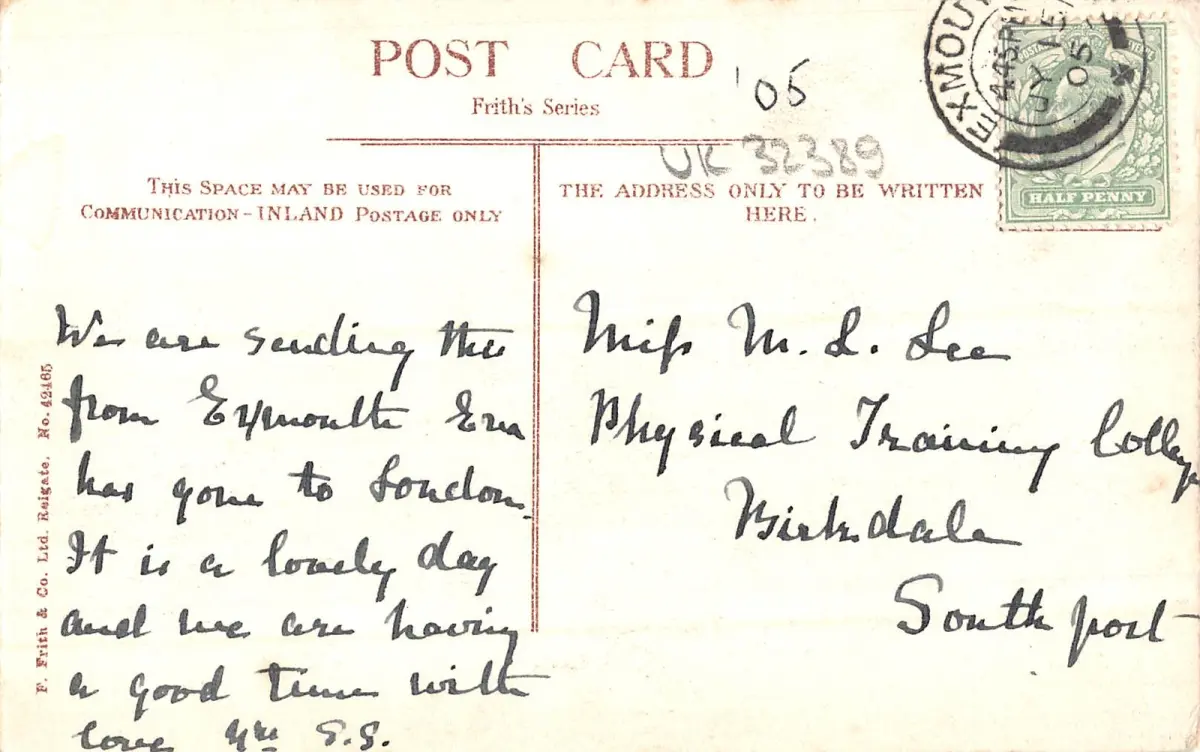 POST CARD
Frith's Series
'05
UK 32389
EXMOUTH
4 45 PM
JY 15
05
POSTAGE
HALF PENNY
THIS SPACE MAY BE USED FOR
COMMUNICATION-INLAND POSTAGE ONLY
THE ADDRESS ONLY TO BE WRITTEN
HERE.
We are sending this
from Exmouth Ena
has gone to London.
It is a lovely day
and we are having
a good time with
love yrs
Miss M. L. Lee
Physical Training College
Birkdale
Southport
F. Frith & Co. Ltd. Reigate. No. 42465